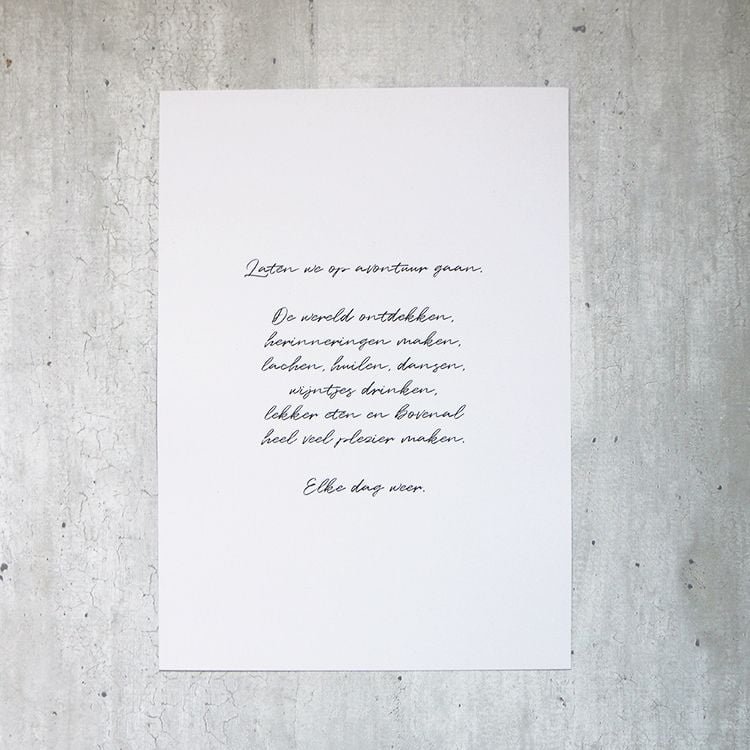 Laten we op avontuur gaan.
De wereld ontdekken,
herinneringen maken,
lachen, huilen, dansen,
wijntjes drinken,
lekker eten en bovenal
heel veel plezier maken.
Elke dag weer.